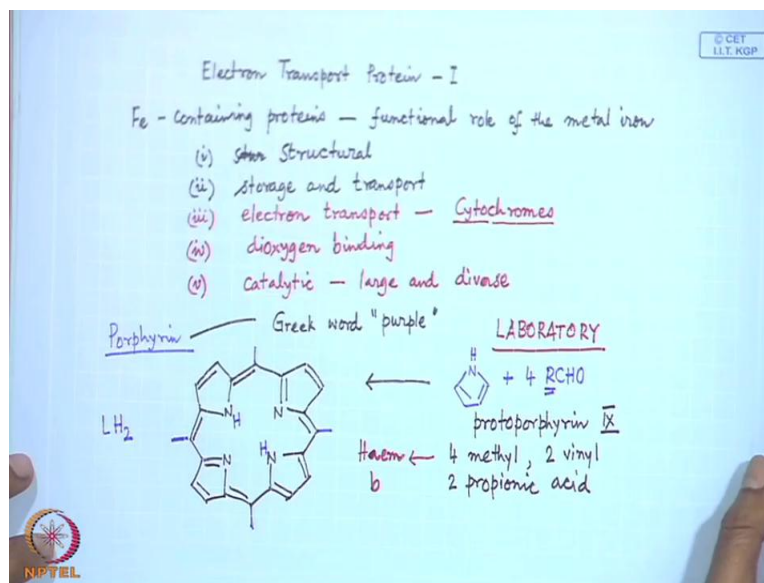 © CET
I.I.T. KGP
Electron Transport Protein - I
Fe - containing proteins — functional role of the metal iron
(i) Structural
(ii) storage and transport
(iii) electron transport — Cytochromes
(iv) dioxygen binding
(v) catalytic — large and diverse
Porphyrin — Greek word "purple"
LABORATORY
H
N + 4 RCHO
LH2
N H N
N H N
protoporphyrin IX
Haem ← 4 methyl, 2 vinyl
b 2 propionic acid
NPTEL